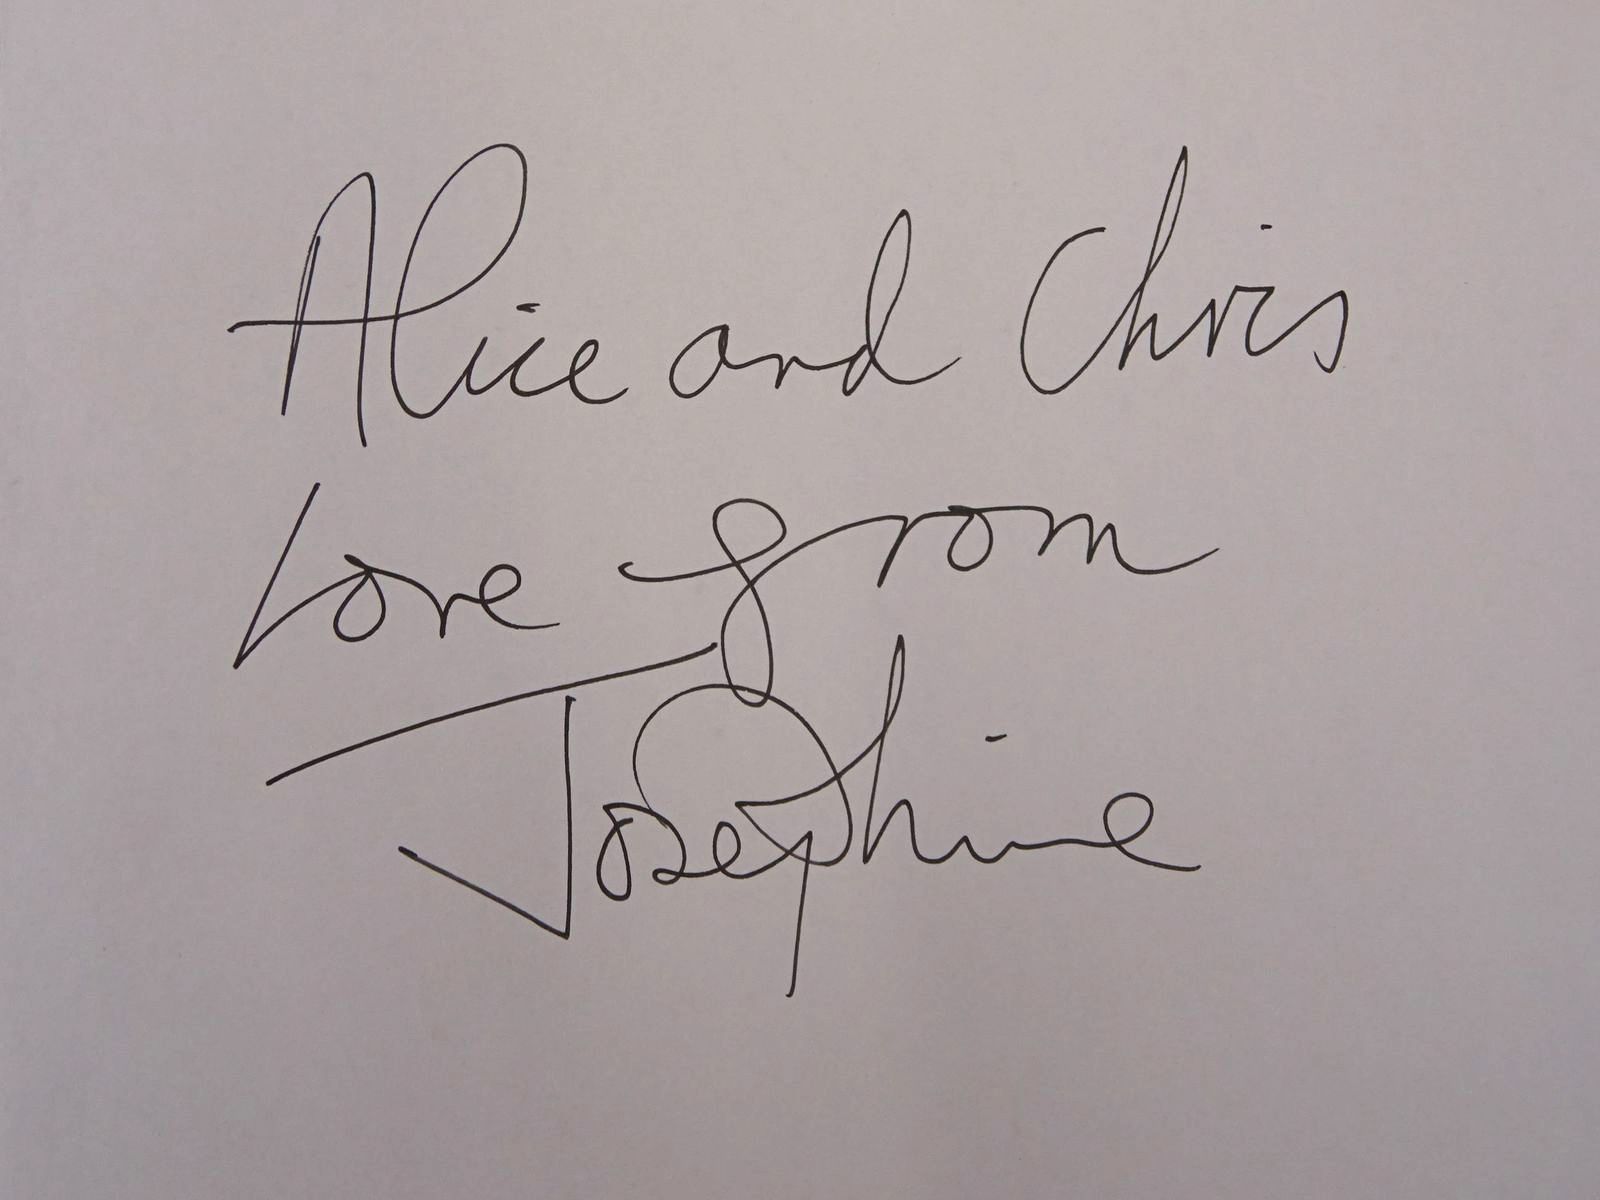 Alice and Chris
Love from
Josephine